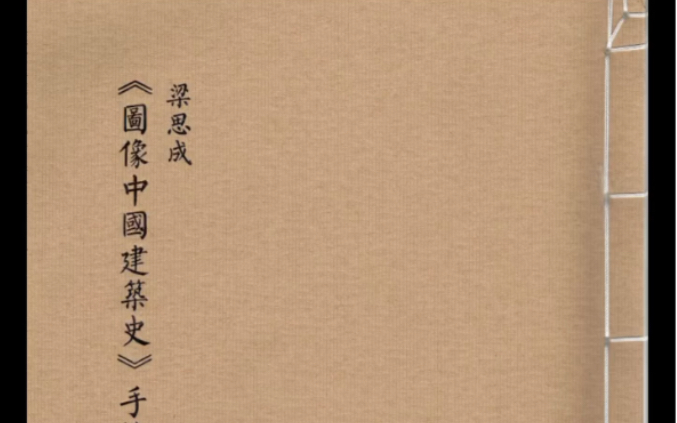 梁思成
《圖像中國建築史》手